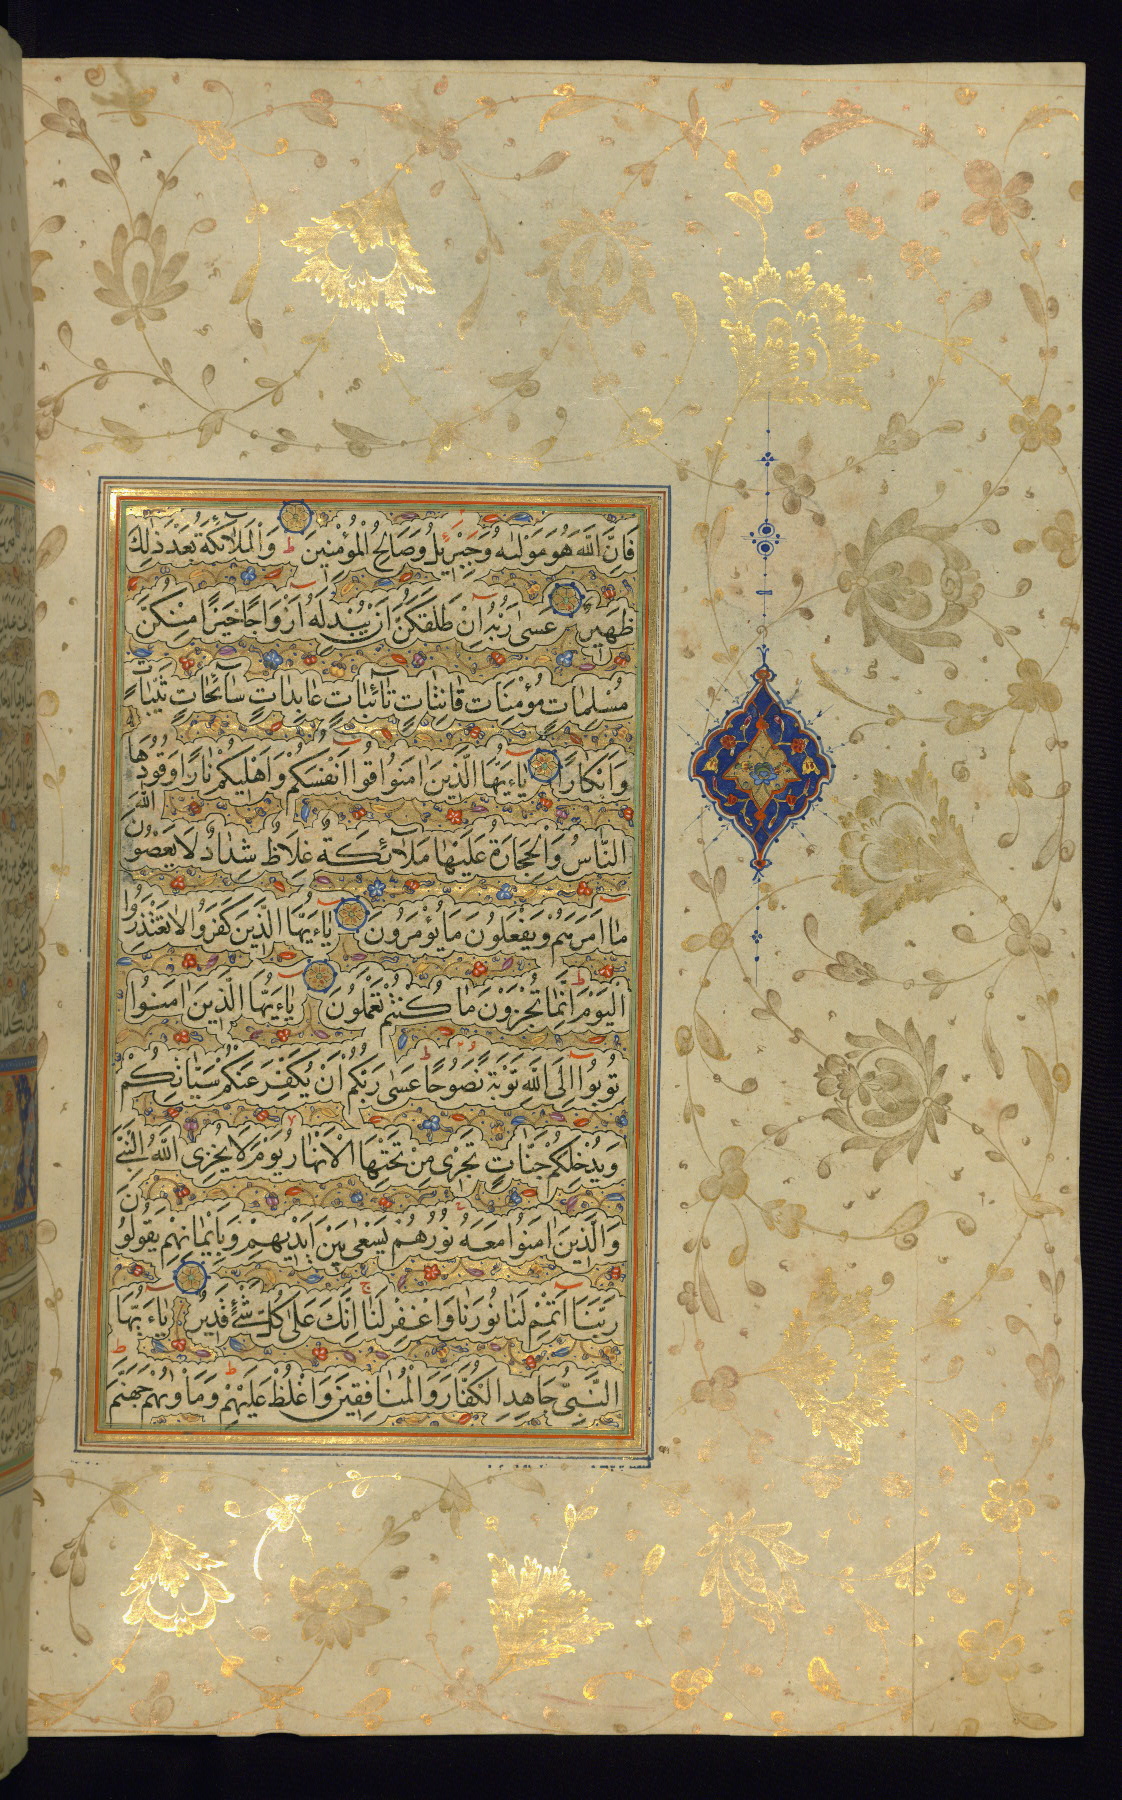 فَاِنَّ اللّٰهَ هُوَ مَوْلٰيهُ وَجِبْرٖئيلُ وَصَالِحُ الْمُؤْمِنٖينَ ط وَالْمَلٰٓئِكَةُ بَعْدَ ذٰلِكَ
ظَهٖيرٌ عَسٰى رَبُّهُٓ اِنْ طَلَّقَكُنَّ اَنْ يُبْدِلَهُٓ اَزْوَاجًا خَيْرًا مِنْكُنَّ
مُسْلِمَاتٍ مُؤْمِنَاتٍ قَانِتَاتٍ تَآئِبَاتٍ عَابِدَاتٍ سَآئِحَاتٍ ثَيِّبَاتٍ
وَاَبْكَارًا يَآءَيُّهَا الَّذٖينَ اٰمَنُوا قُٓوا اَنْفُسَكُمْ وَاَهْلٖيكُمْ نَارًا وَقُودُهَا
النَّاسُ وَالْحِجَارَةُ عَلَيْهَا مَلٰٓئِكَةٌ غِلَاظٌ شِدَادٌ لَا يَعْصُونَ اللّٰهَ
مَٓا اَمَرَهُمْ وَيَفْعَلُونَ مَا يُؤْمَرُونَ يَآءَيُّهَا الَّذٖينَ كَفَرُوا لَا تَعْتَذِرُوا
الْيَوْمَ ط اِنَّمَا تُجْزَوْنَ مَا كُنْتُمْ تَعْمَلُونَ يَآءَيُّهَا الَّذٖينَ اٰمَنُوا
تُوبُٓوا اِلَى اللّٰهِ تَوْبَةً نَصُوحًا ط عَسٰى رَبُّكُمْ اَنْ يُكَفِّرَ عَنْكُمْ سَيِّئَاتِكُمْ
وَيُدْخِلَكُمْ جَنَّاتٍ تَجْرٖى مِنْ تَحْتِهَا الْاَنْهَارُ يَوْمَ لَا يُخْزِى اللّٰهُ النَّبِىَّ
وَالَّذٖينَ اٰمَنُوا مَعَهُ نُورُهُمْ يَسْعٰى بَيْنَ اَيْدٖيهِمْ وَبِاَيْمَانِهِمْ يَقُولُونَ
رَبَّنَٓا اَتْمِمْ لَنَا نُورَنَا وَاغْفِرْ لَنَا ج اِنَّكَ عَلٰى كُلِّ شَىْءٍ قَدٖيرٌ يَآءَيُّهَا
النَّبِىُّ جَاهِدِ الْكُفَّارَ وَالْمُنَافِقٖينَ وَاغْلُظْ عَلَيْهِمْ ط وَمَاْوٰيهُمْ جَهَنَّمُ ط